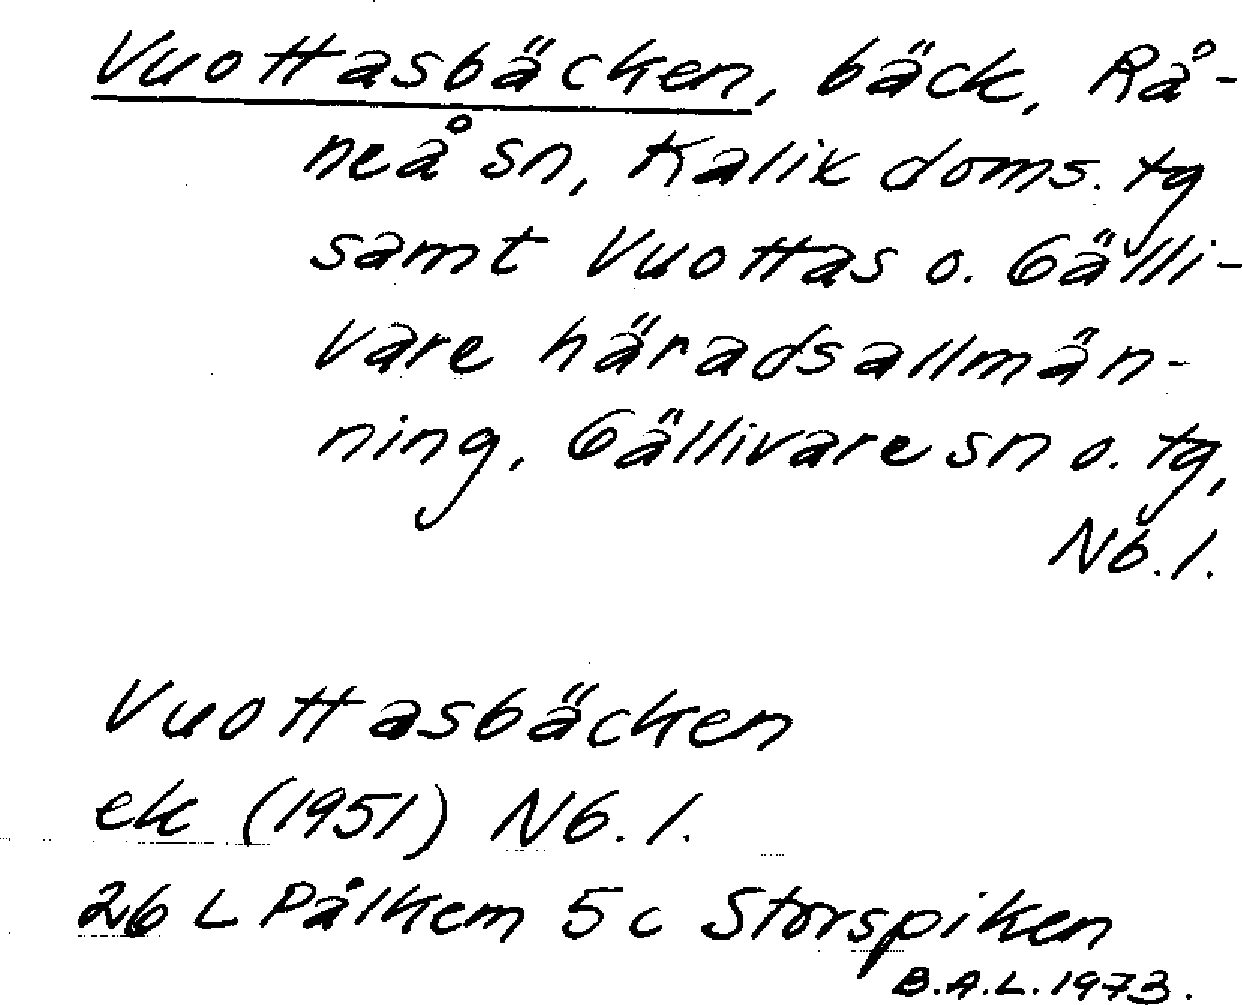 Vuottasbäcken, bäck, Rå-
neå sn, Kalix doms. tg
samt Vuottas o. Gälli-
vare häradsallmän-
ning, Gällivare sn o. tg,
Nb. l.
Vuottasbäcken
ek (1951) Nb. l.
26 L Pålkem 5 c Storspiken
B.A.L. 1973.